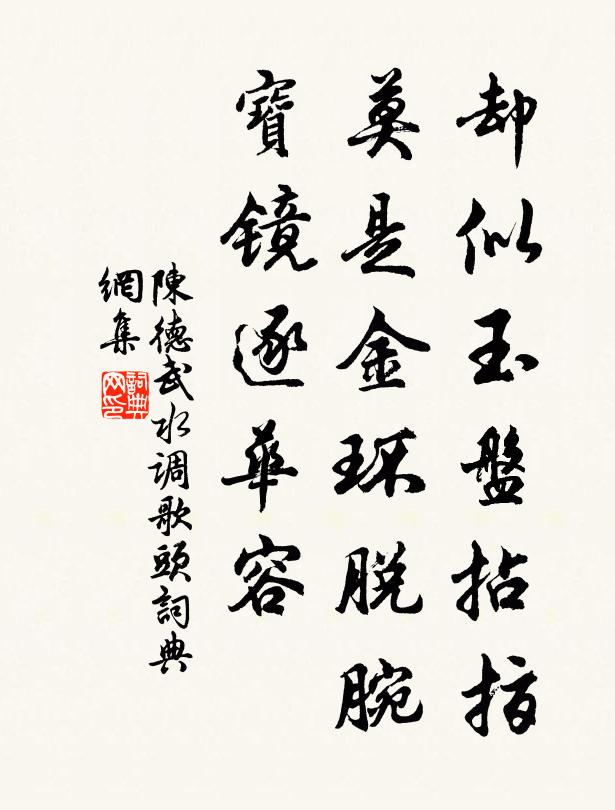 却似玉盤拈指
莫是金环脱腕
寶鏡逐華容
陳德武水调歌頭詞典
網集
詞典
网印